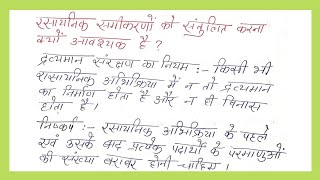 रसायनिक समीकरणों को संतुलित करना
क्यों आवश्यक है ?
द्रव्यमान संरक्षण का नियम :- किसी भी
रासायनिक अभिक्रिया में न तो द्रव्यमान
का निर्माण होता है और न ही विनास
होता है ।
निष्कर्ष :- रसायनिक अभिक्रिया के पहले
एवं उसके बाद प्रत्येक पदार्थो के परमाणुओं
की संख्या बराबर होनी चाहिए ।